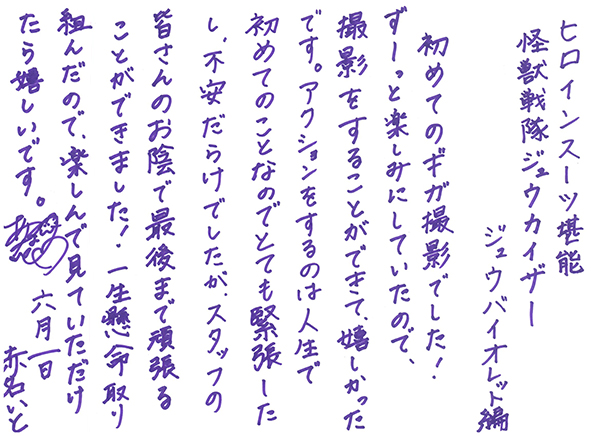 ヒロインスーツ堪能
怪獣戦隊ジュウカイザー
ジュウバイオレット編
初めてのギガ撮影でした！
ずーっと楽しみにしていたので、
撮影をすることができて、嬉しかった
です。アクションをするのは人生で
初めてのことなのでとても緊張した
し、不安だらけでしたが、スタッフの
皆さんのお陰で最後まで頑張る
ことができました！一生懸命取り
組んだので、楽しんで見ていただけ
たら嬉しいです。
六月一日
赤名いと